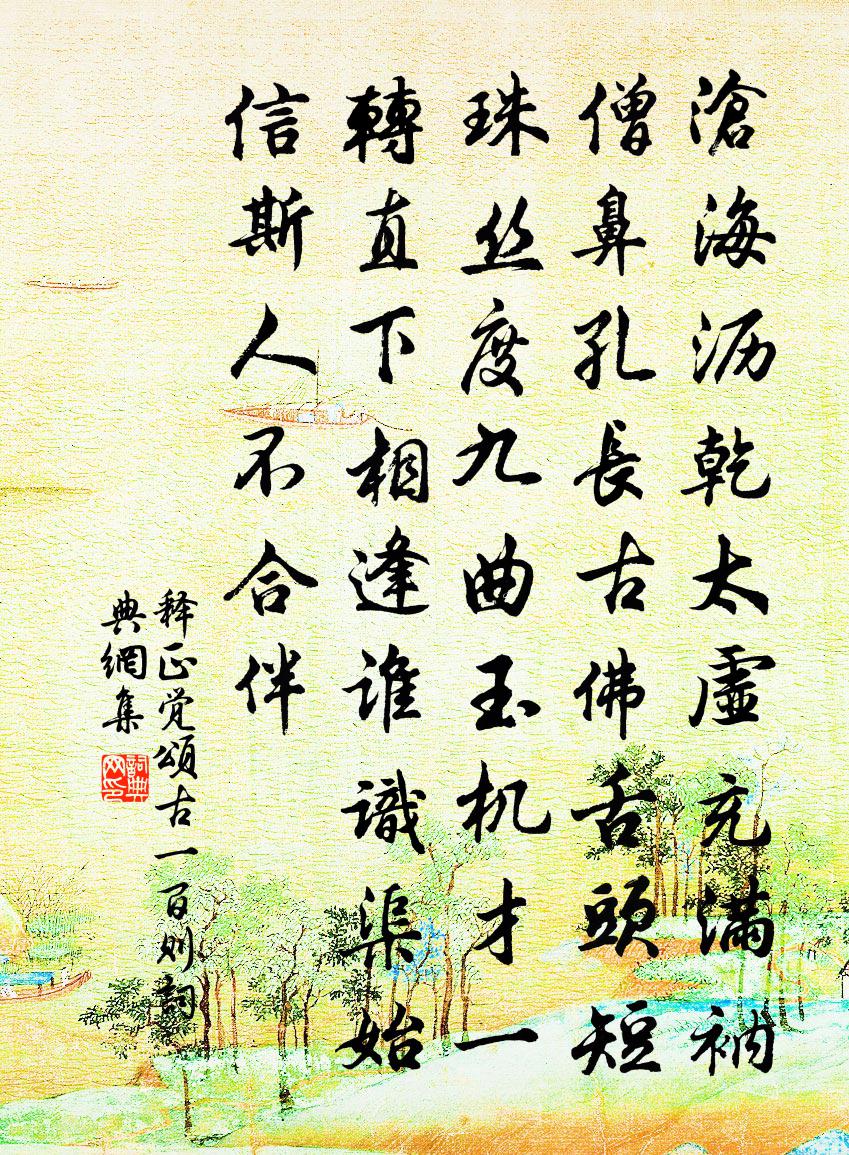 滄海沥乾太虛充滿衲
僧鼻孔長古佛舌頭短
珠丝度九曲玉机才一
轉直下相逢誰識渠始
信斯人不合伴
释正觉頌古一百则詞
典網集
詞典网印